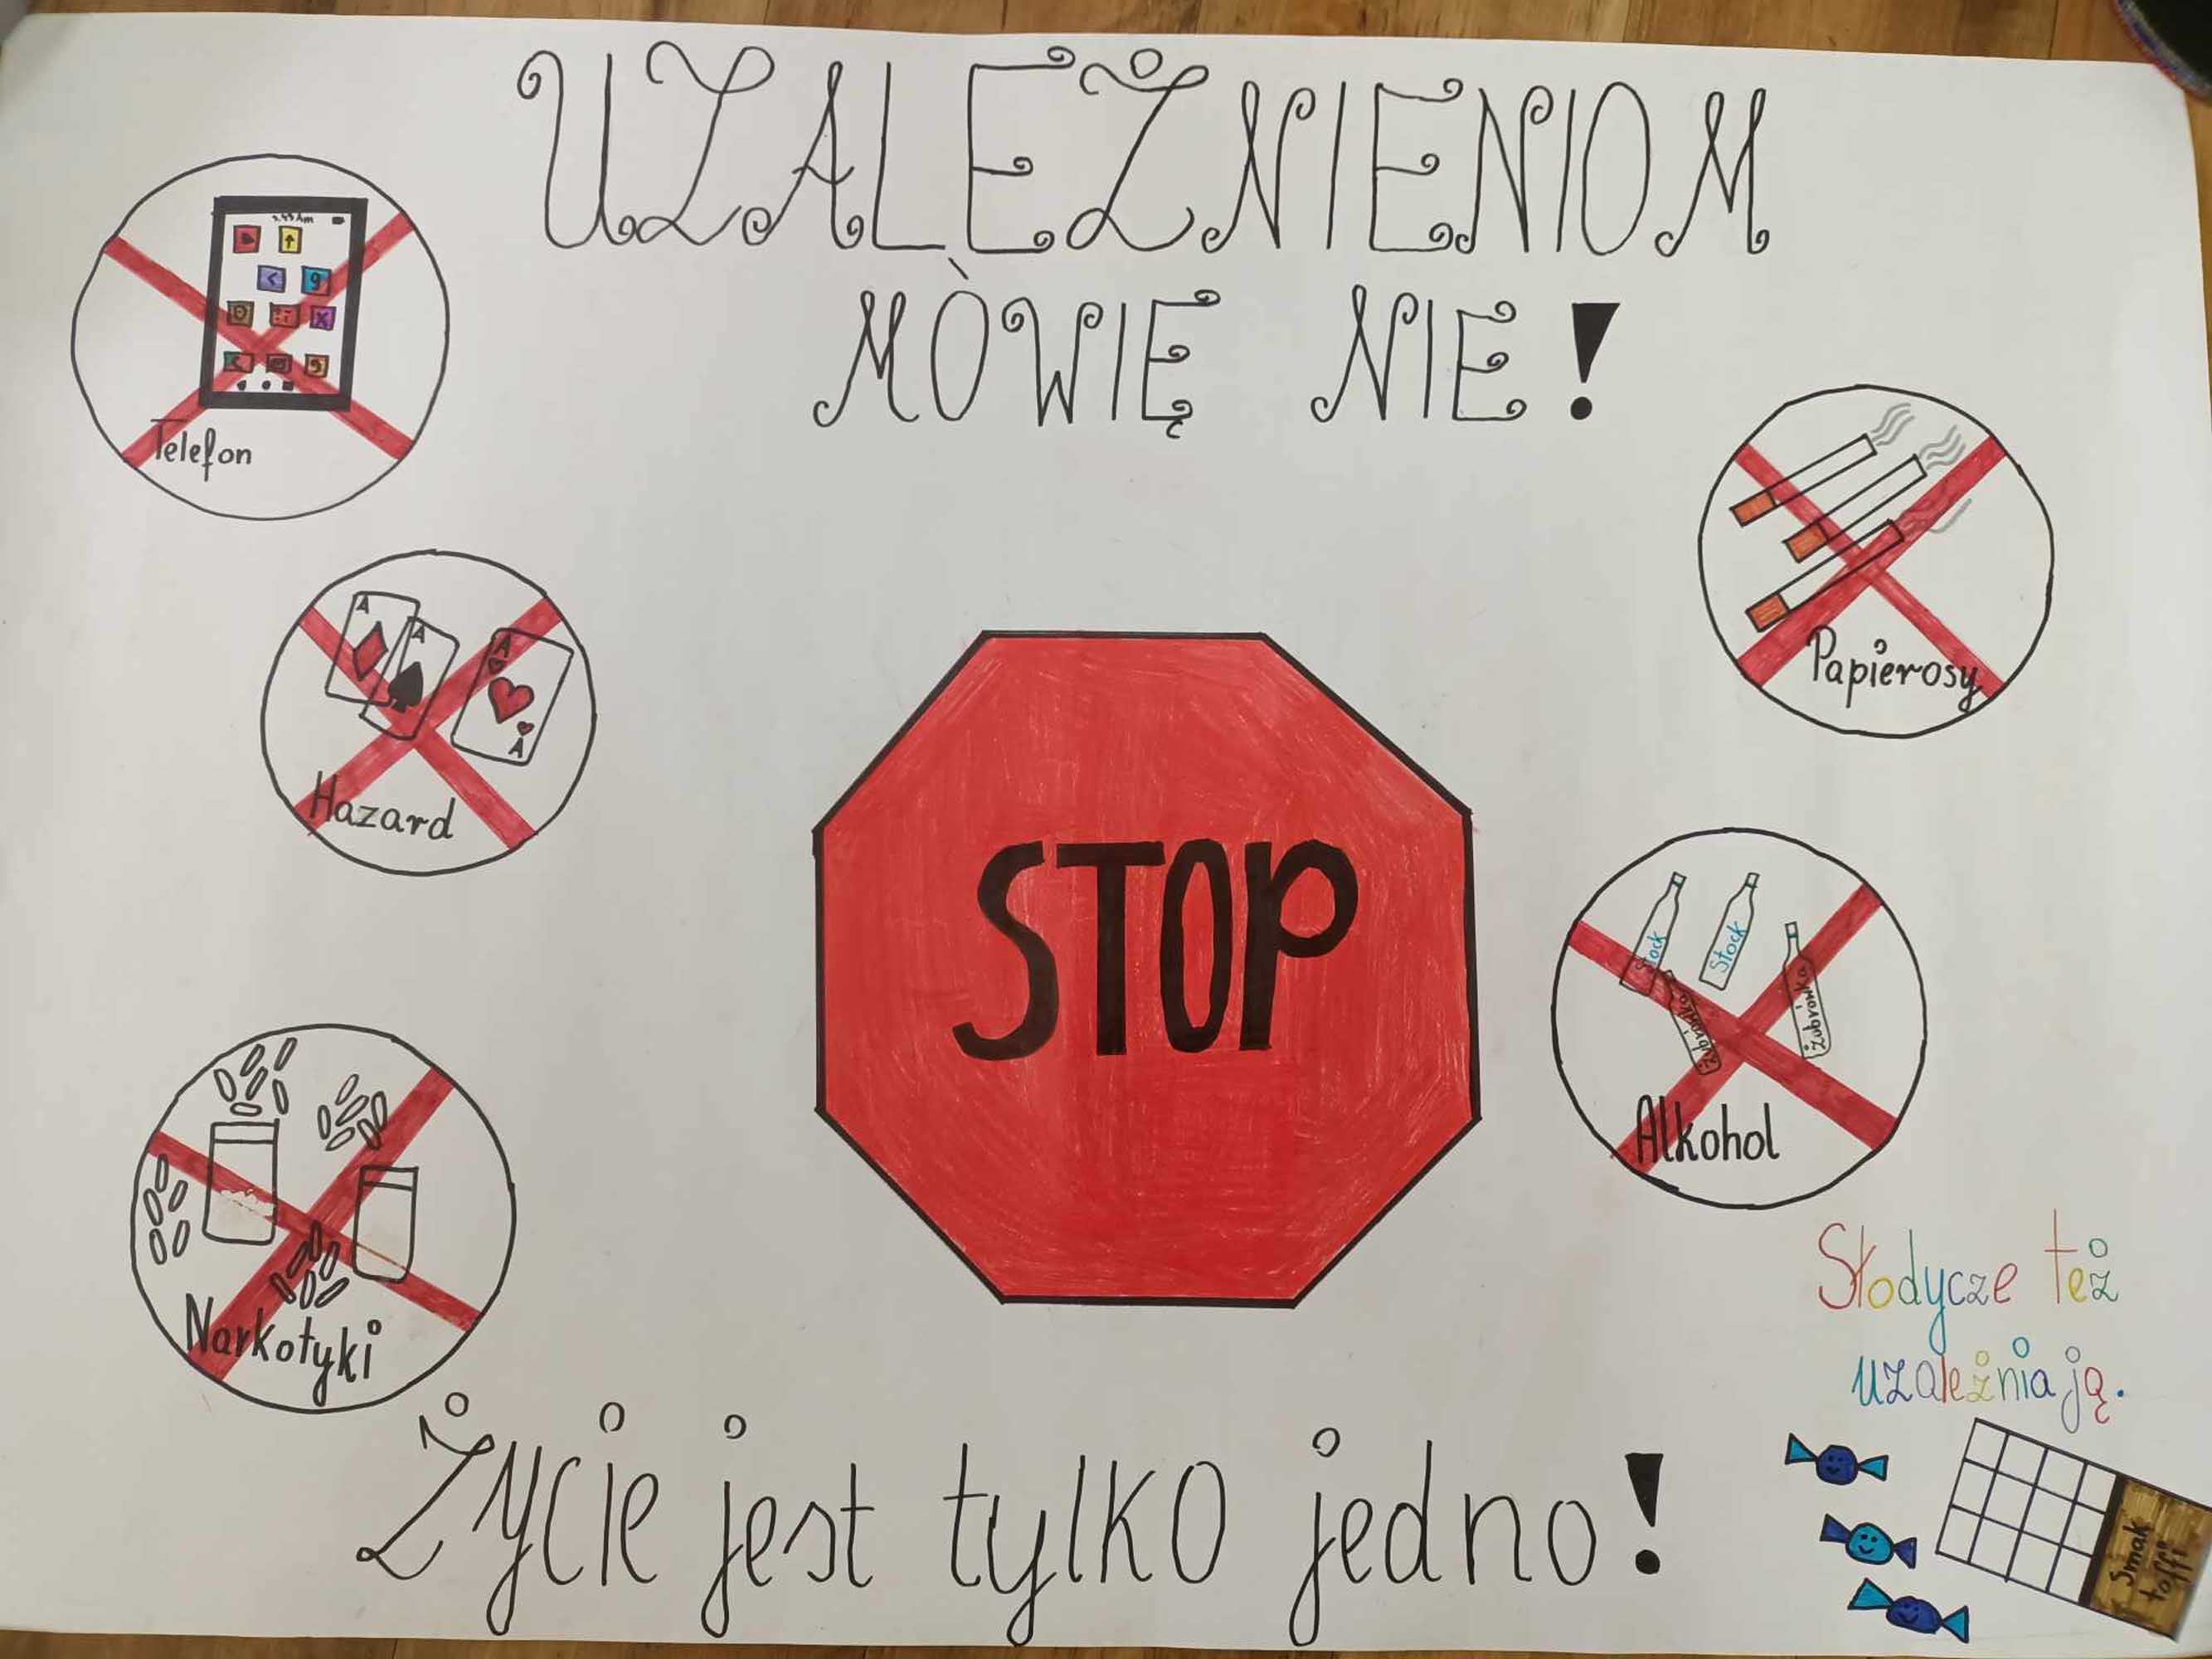 UZALEŻNIENIOM
MÒWIĘ NIE!
Telefon
A
A
A
A
Hazard
Papierosy
STOP
Stock
Stock
Żubrówka
Żubrówka
Alkohol
Narkotyki
Słodycze też
uzależniają.
Smak
toffi
Życie jest tylko jedno!